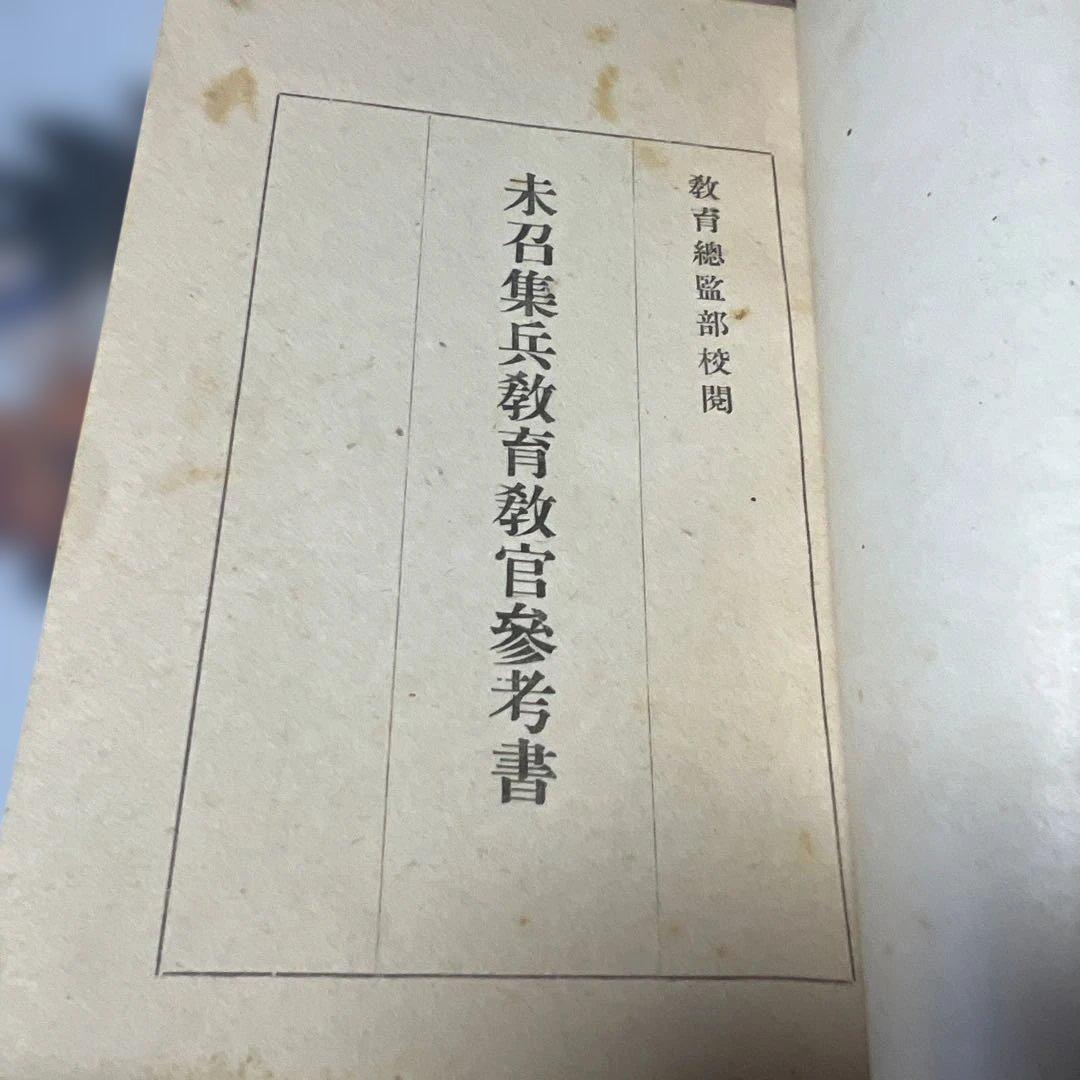 教育總監部校閱
未召集兵教育教官參考書